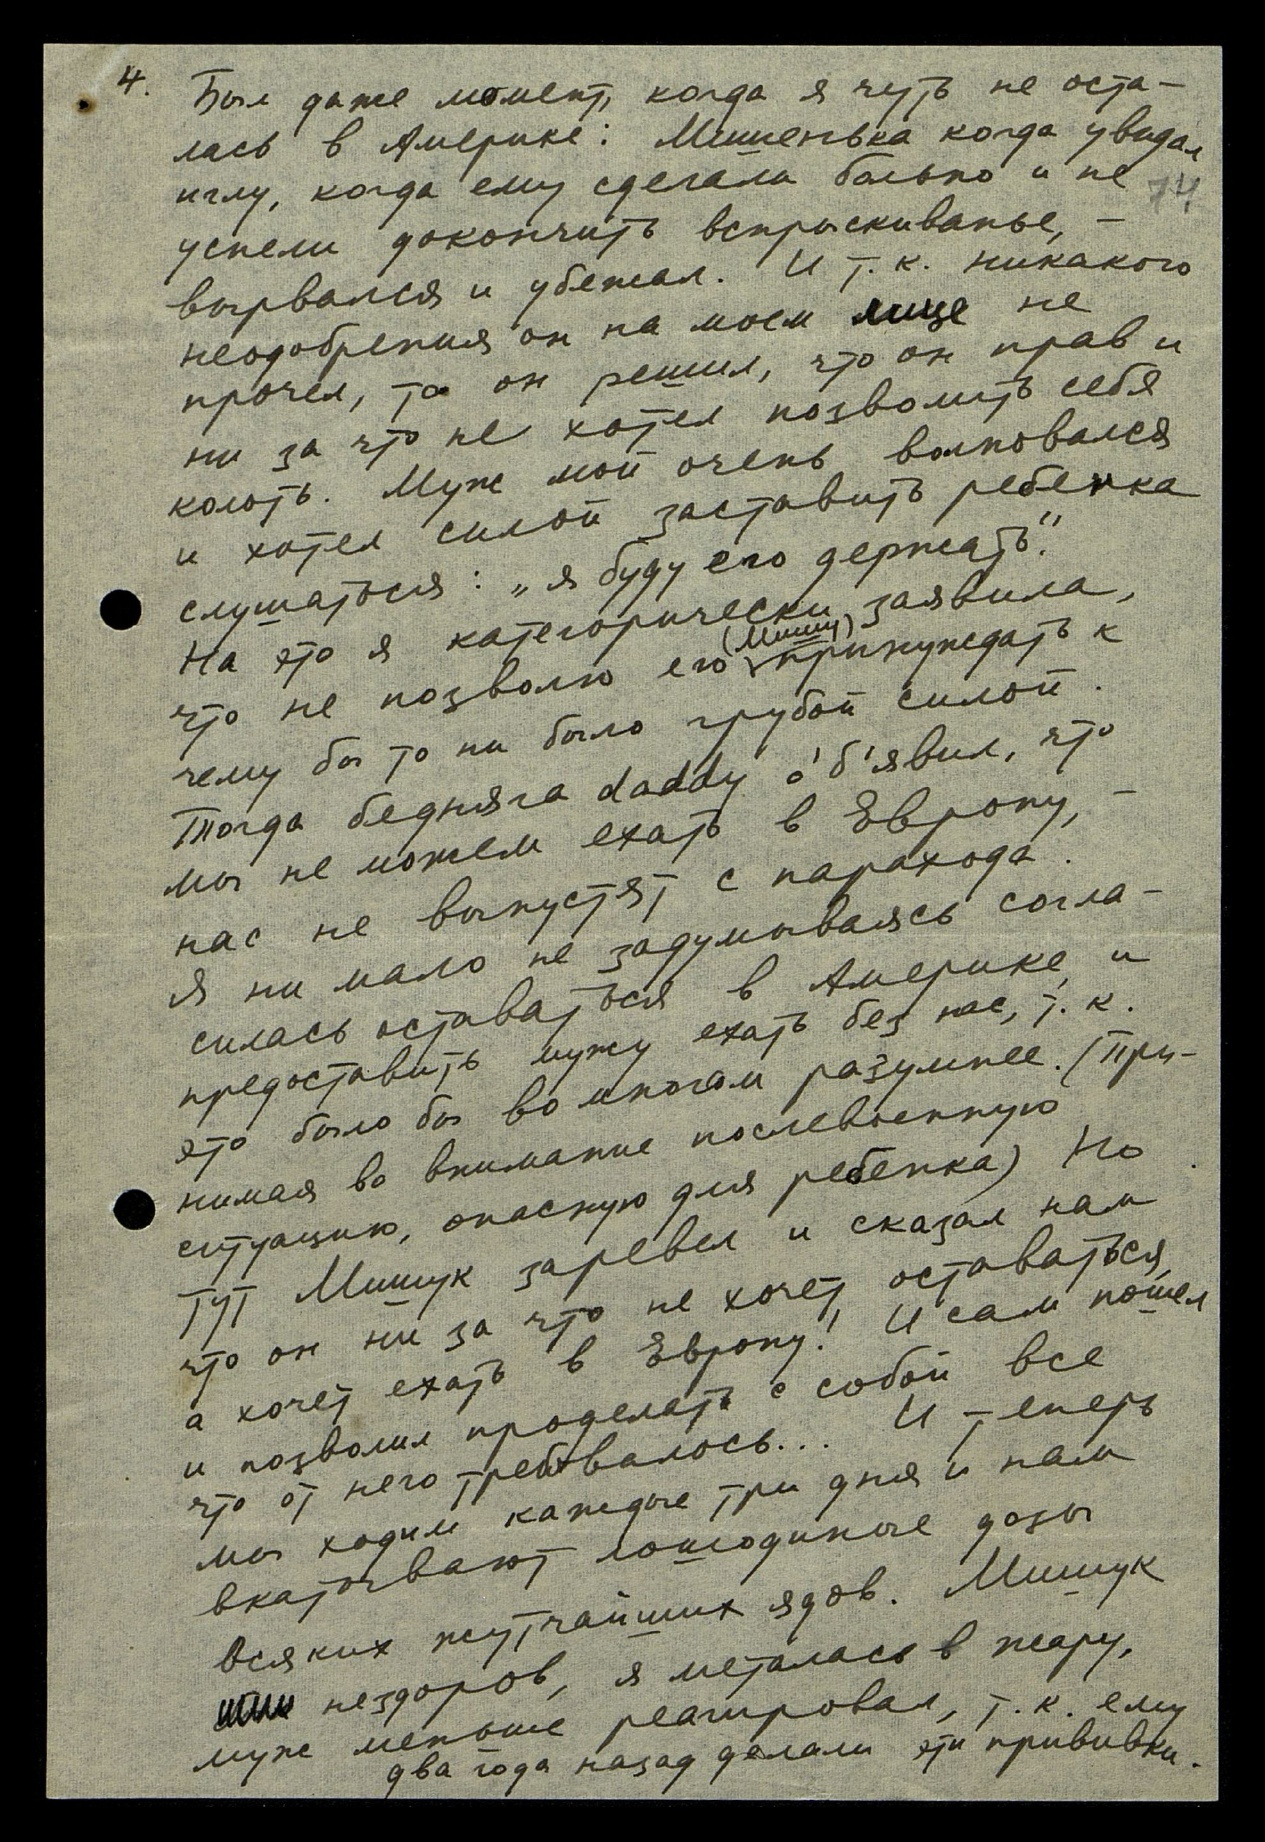 4.
Был даже момент, когда я чуть не оста-
лась в Америке: Мишенька когда увидал
иглу, когда ему сделали больно и не
74
успели докончить вспрыскиванье, –
вырвался и убежал. И т.к. никакого
неодобрения он на моем лице не
прочел, то он решил, что он прав и
ни за что не хотел позволить себя
колоть. Муж мой очень волновался
и хотел силой заставить ребенка
слушаться: „я буду его держать".
На это я категорически заявила,
что не позволю его (Мишу) принуждать к
чему бы то ни было грубой силой.
Тогда бедняга daddy об'явил, что
мы не можем ехать в Европу, –
нас не выпустят с парахода.
Я ни мало не задумываясь согла-
силась оставаться в Америке и
предоставить мужу ехать без нас, т.к.
это было бы во многом разумнее. (При-
нимая во внимание послевоенную
ситуацию, опасную для ребенка) Но
тут Мишук заревел и сказал нам
что он ни за что не хочет оставаться,
а хочет ехать в Европу! И сам пошел
и позволил проделать с собой все
что от него требовалось... И теперь
мы ходим каждые три дня и нам
вкатывают лошадиные дозы
всяких жутчайших ядов. Мишук
нездоров, я металась в жару,
муж меньше реагировал, т.к. ему
два года назад делали эти прививки.